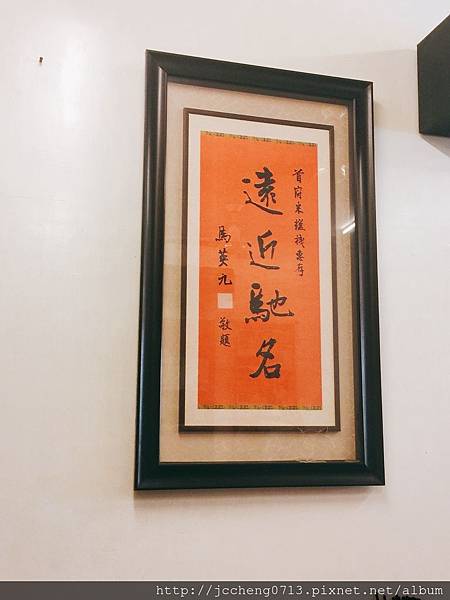 首府米糕棧惠存
遠近馳名
馬英九
敬題
http://jccheng0713.pixnet.net/album